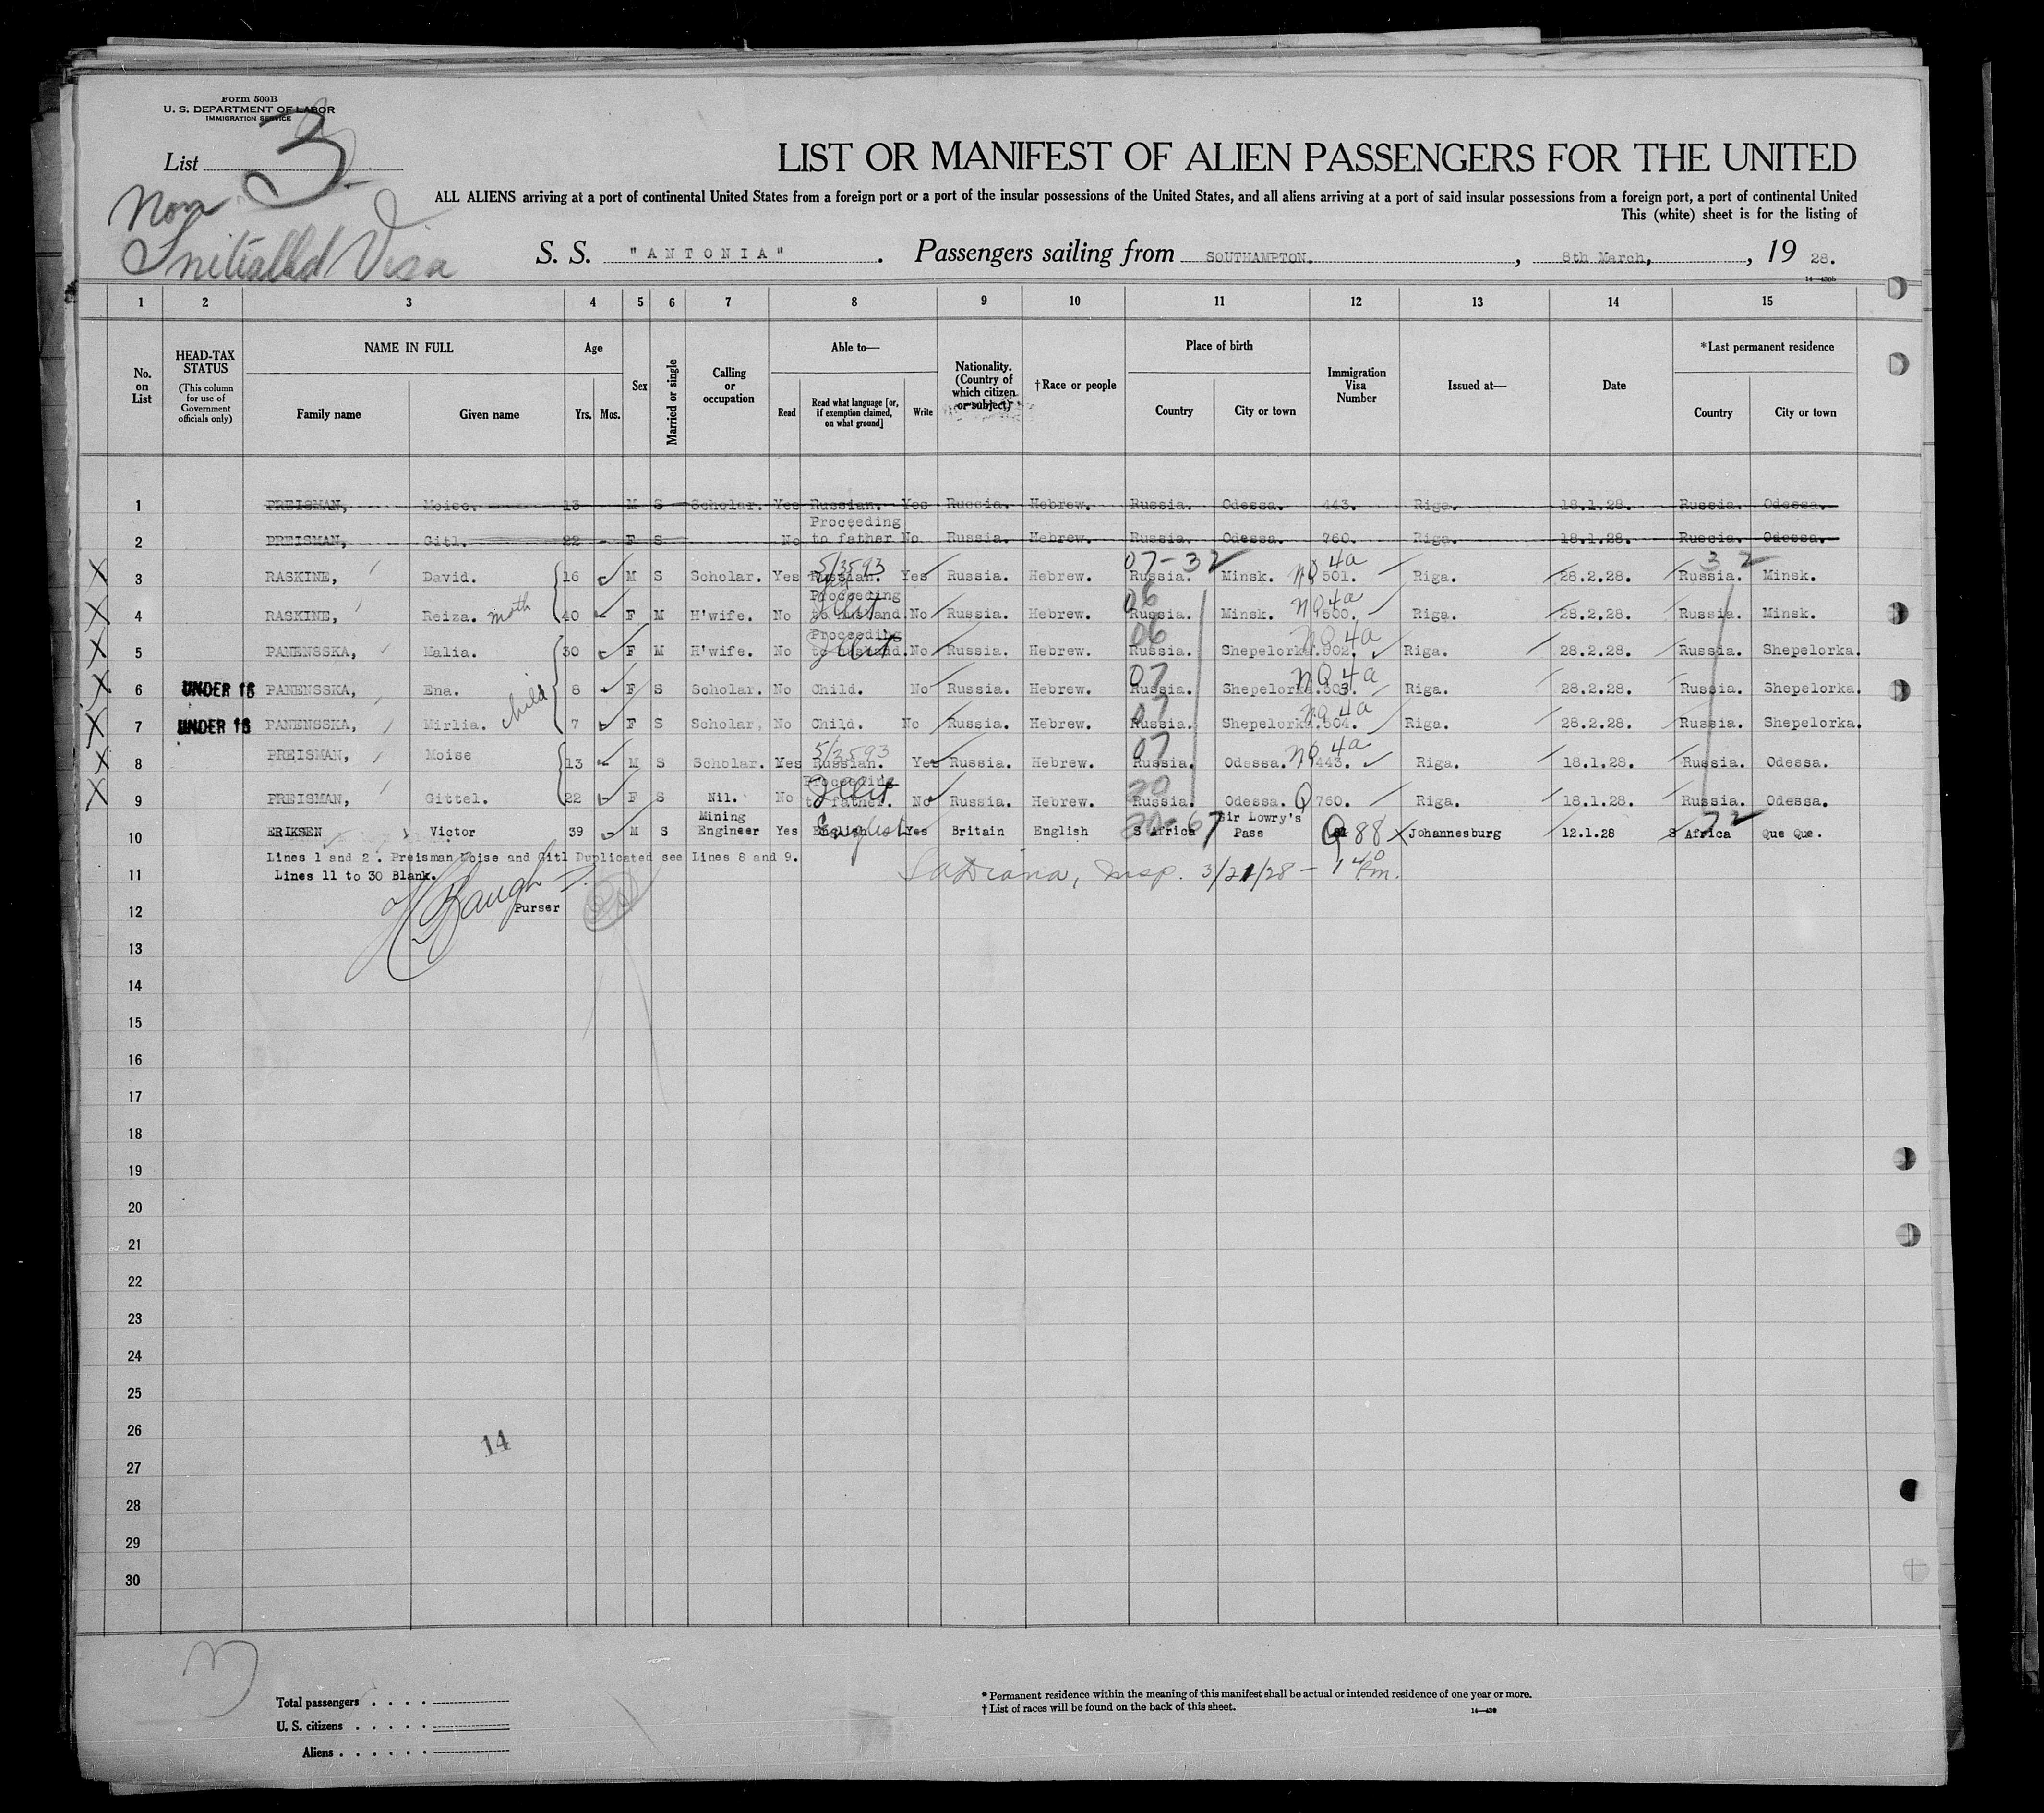 Form 500B
U. S. DEPARTMENT OF LABOR
IMMIGRATION SERVICE
List 3
Non
Initialled Visa
LIST OR MANIFEST OF ALIEN PASSENGERS FOR THE UNITED
ALL ALIENS arriving at a port of continental United States from a foreign port or a port of the insular possessions of the United States, and all aliens arriving at a port of said insular possessions from a foreign port, a port of continental United
This (white) sheet is for the listing of
S. S. "ANTONIA". Passengers sailing from SOUTHAMPTON., 8th March, , 19 28.
14—430b
1 2 3 4 5 6 7 8 9 10 11 12 13 14 15
No. on List
HEAD-TAX STATUS
(This column for use of Government officials only)
NAME IN FULL
Family name Given name
Age
Yrs. Mos.
Sex
Married or single
Calling or occupation
Able to—
Read
Read what language [or, if exemption claimed, on what ground]
Write
Nationality. (Country of which citizen or subject)
†Race or people
Place of birth
Country City or town
Immigration Visa Number
Issued at—
Date
*Last permanent residence
Country City or town
1 PREISMAN, Moise. 13 M S Scholar. Yes Russian. Yes Russia. Hebrew. Russia. Odessa. 443. Riga. 18.1.28. Russia. Odessa.
2 PREISMAN, Gitl. 22 F S No Proceeding to father No Russia. Hebrew. Russia. Odessa. 760. Riga. 18.1.28. Russia. Odessa.
X 3 RASKINE, David. 16 M S Scholar. Yes 5/3593 Russian. Yes Russia. Hebrew. 07-32 Russia. Minsk. NQ 4a 501. Riga. 28.2.28. 32 Russia. Minsk.
X 4 RASKINE, Reiza. moth 40 F M H'wife. No Proceeding to husband. No Russia. Hebrew. 06 Russia. Minsk. NQ 4a 500. Riga. 28.2.28. Russia. Minsk.
X 5 PANENSSKA, Malia. 30 F M H'wife. No Proceeding to husband. No Russia. Hebrew. 06 Russia. Shepelorka. NQ 4a 902. Riga. 28.2.28. Russia. Shepelorka.
X 6 UNDER 16 PANENSSKA, Ena. child 8 F S Scholar. No Child. No Russia. Hebrew. 07 Russia. Shepelorka. NQ 4a Riga. 28.2.28. Russia. Shepelorka.
X 7 UNDER 16 PANENSSKA, Mirlia. 7 F S Scholar, No Child. No Russia. Hebrew. 07 Russia. Shepelorka. NQ 4a 904. Riga. 28.2.28. Russia. Shepelorka.
X 8 PREISMAN, Moise 13 M S Scholar. Yes 5/3593 Russian. Yes Russia. Hebrew. 07 Russia. Odessa. NQ 4a 443. Riga. 18.1.28. Russia. Odessa.
X 9 PREISMAN, Gittel. 22 F S Nil. No Proceeding to father. Illit No Russia. Hebrew. 20 Russia. Odessa. Q 760. Riga. 18.1.28. Russia. Odessa.
10 ERIKSEN Victor 39 M S Mining Engineer Yes English English Yes Britain English 20-67 S Africa Sir Lowry's Pass Q 88 Johannesburg 12.1.28 S Africa 72 Que Que.
Lines 1 and 2. Preisman Moise and Gitl Duplicated see Lines 8 and 9.
11 Lines 11 to 30 Blank. Insp. 3/21/28 - 1 40 Pm.
12 Purser
13
14
15
16
17
18
19
20
21
22
23
24
25
26
14
27
28
29
30
3
Total passengers
U. S. citizens
Aliens
* Permanent residence within the meaning of this manifest shall be actual or intended residence of one year or more.
† List of races will be found on the back of this sheet.
14—430